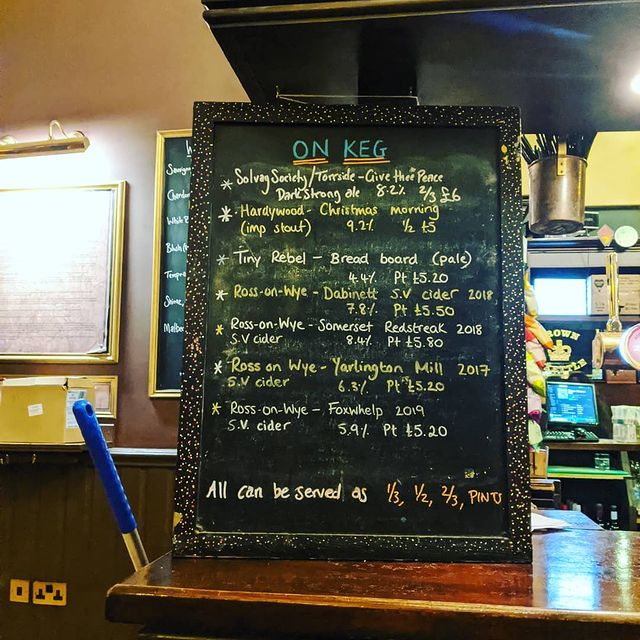 ON KEG
* Solvay Society/Torrside - Give thee Peace
Dark Strong ale 8.2% 2/3 £6
* Hardywood - Christmas morning
(imp stout) 9.2% 1/2 £5
* Tiny Rebel - Bread board (pale)
4.4% Pt £5.20
* Ross-on-Wye - Dabinett S.V cider 2018
7.8% Pt £5.50
* Ross-on-Wye - Somerset Redstreak 2018
S.V cider 8.4% Pt £5.80
* Ross on Wye - Yarlington Mill 2017
S.V cider 6.3% Pt £5.20
* Ross-on-Wye - Foxwhelp 2019
S.V. cider 5.9% Pt £5.20
All can be served as 1/3, 1/2, 2/3, PINTS